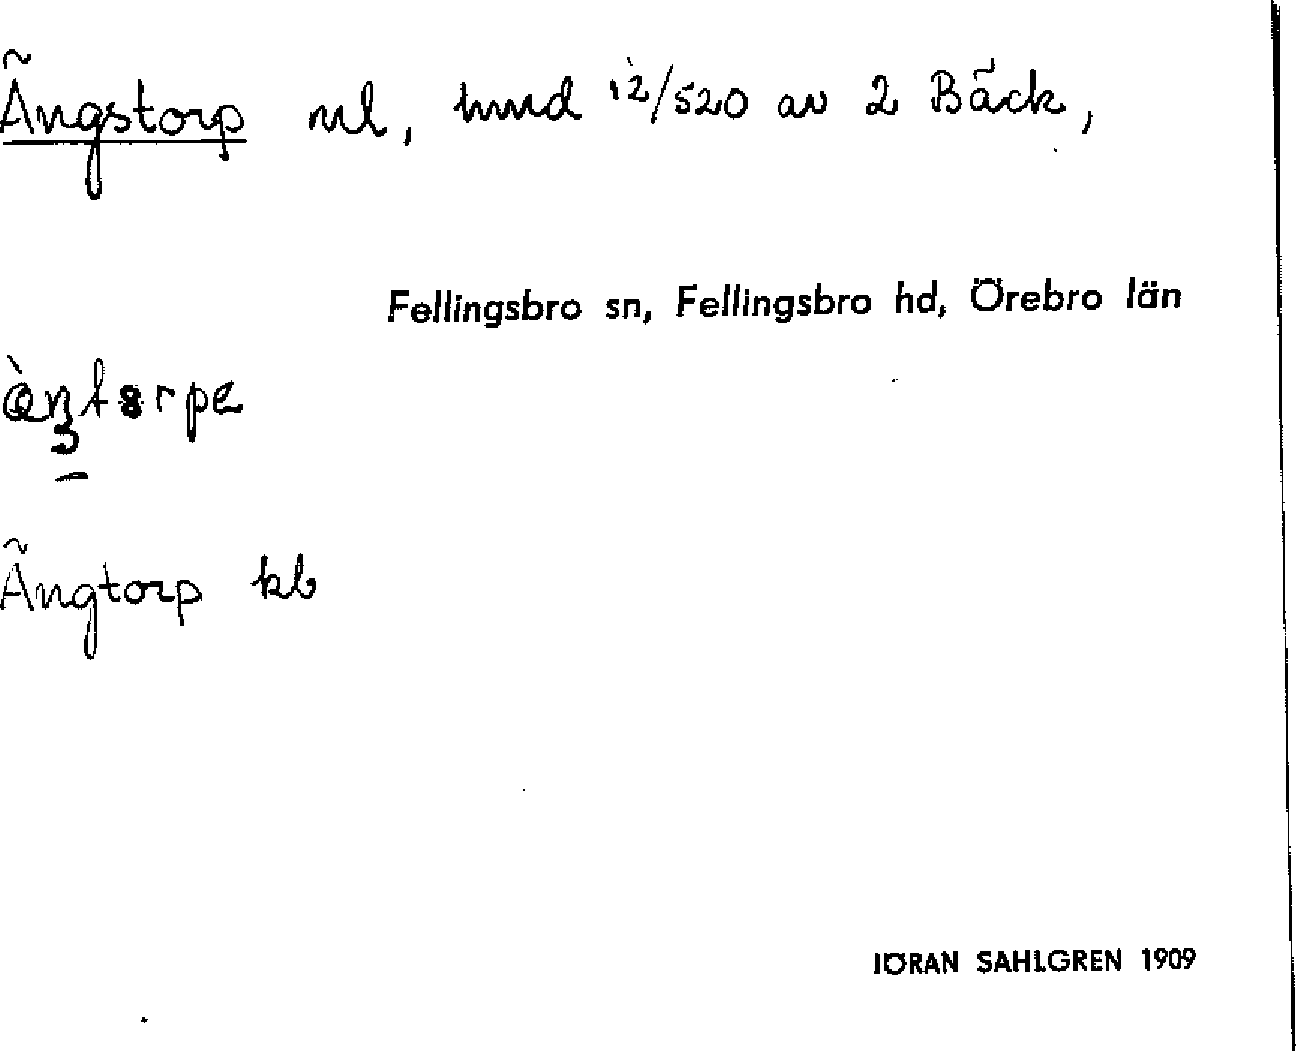 Ängstorp nl, hmd 12/520 av 2 Bäck,
Fellingsbro sn, Fellingsbro hd, Örebro län
Ängtorp kb
JÖRAN SAHLGREN 1909